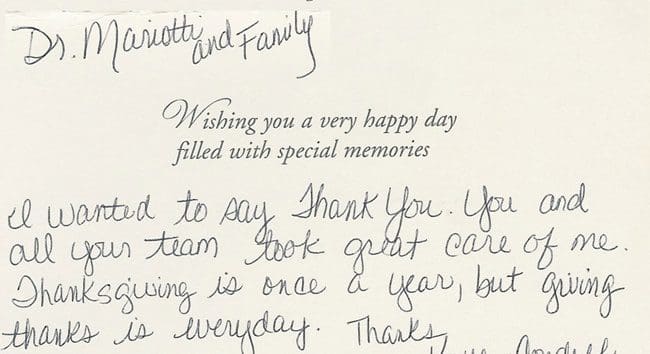 Dr. Mariotti and Family
Wishing you a very happy day
filled with special memories
I wanted to say Thank You. You and
all your team took great care of me.
Thanksgiving is once a year, but giving
thanks is everyday. Thanks,